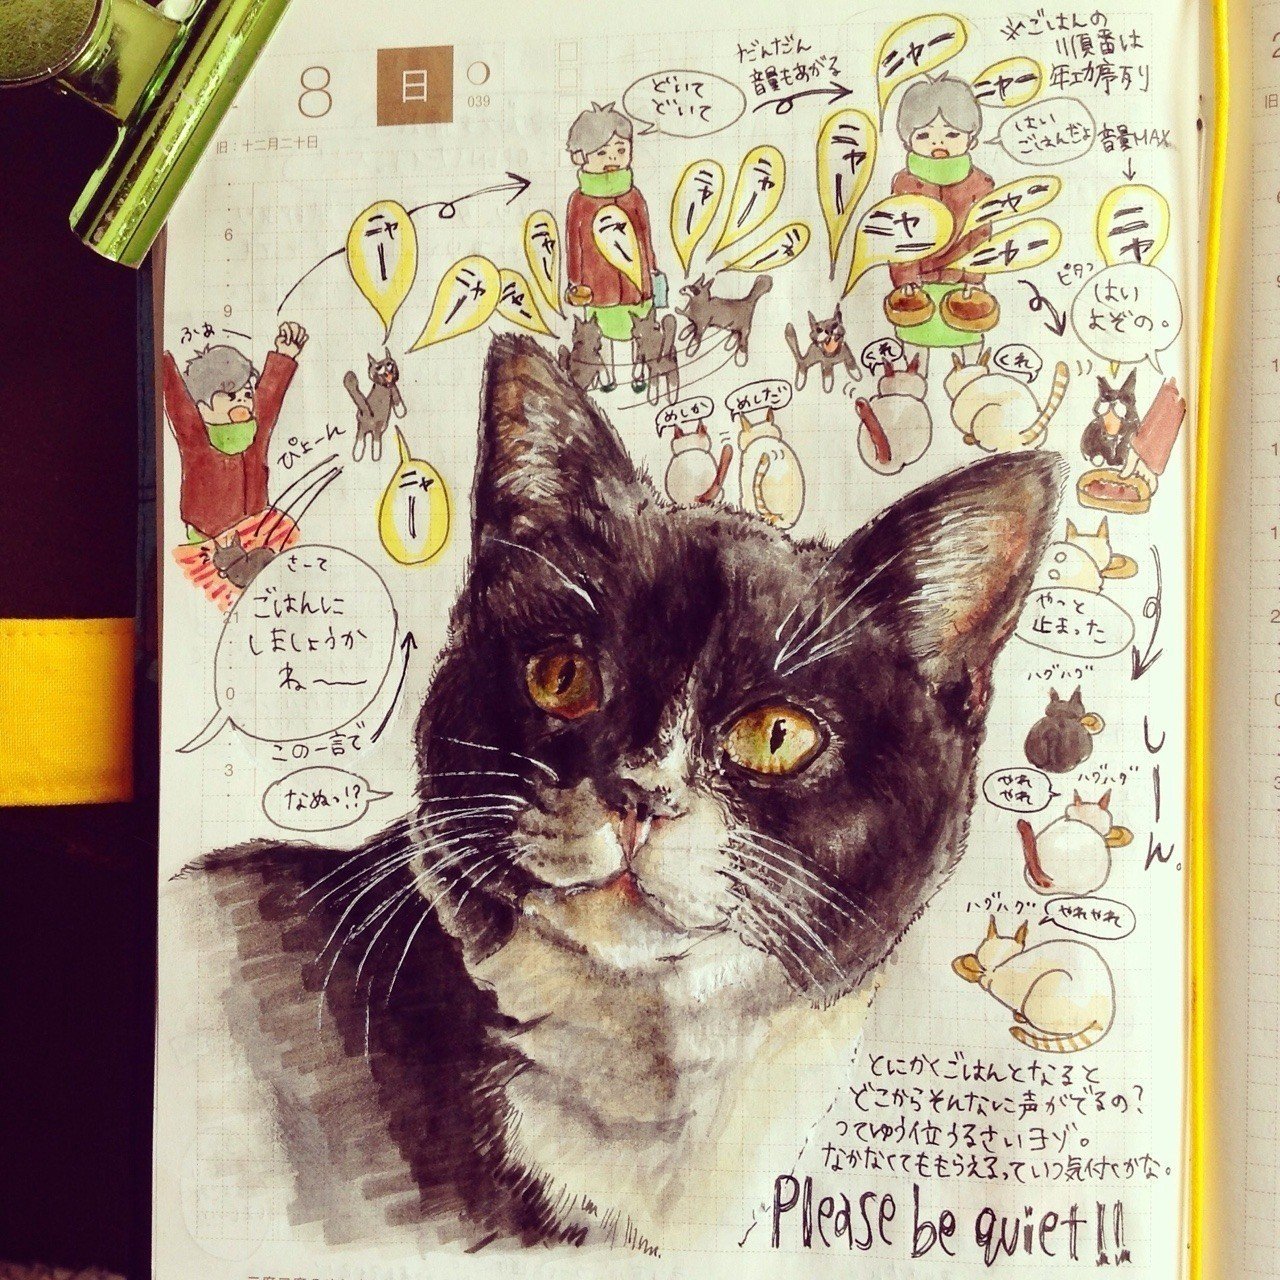 8
日
039
旧：十二月二十日
6
9
12
21
0
3
さーて
ごはんに
しましょうか
ね〜
この一言で
なぬっ!?
ぴょーん
ふぁ〜
ニャー
ニャー
ニャー
ニャー
ニャー
ニャー
どいて
どいて
だんだん
音量もあがる
ニャー
ニャー
めしか
めしだ
※ごはんの
順番は
年功序列
ニャー
ニャー
ニャー
ニャー
ニャー
ニャー
はい
ごはんだよ
くれ
くれ
音量MAX
ニャ
ピタッ
はい
よぞの。
やっと
止まった
しーーん。
ハグハグ
ハグハグ
やれ
やれ
ハグハグ
やれやれ
とにかくごはんとなると
どこからそんなに声がでるの?
ってゆう位うるさいヨゾ。
なかなくてももらえるっていつ気付くかな。
Please be quiet!!